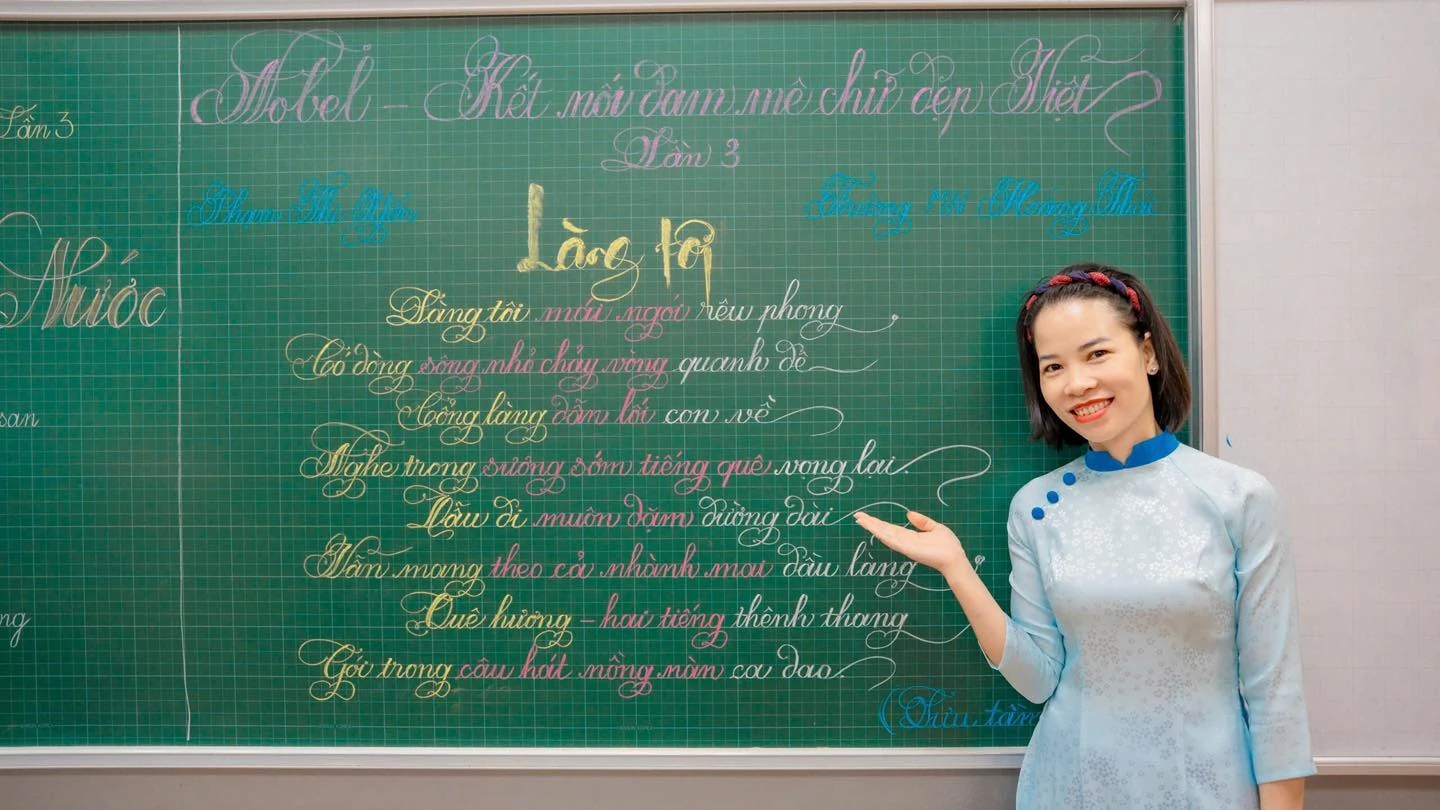 Lần 3
Nước
san
ng
Nobel – Kết nối đam mê chữ đẹp Việt
Lần 3
Phạm Thị Yến
Trường MN Hoàng
Làng tôi
Làng tôi mái ngói rêu phong,
Có dòng sông nhỏ chảy vòng quanh đê
Cổng làng dẫn lối con về
Nghe trong sương sớm tiếng quê vọng lại.
Dẫu đi muôn dặm đường dài
Vẫn mang theo cả nhành mai đầu làng
Quê hương – hai tiếng thênh thang
Gói trong câu hát nồng nàn ca dao.
(Sưu tầm